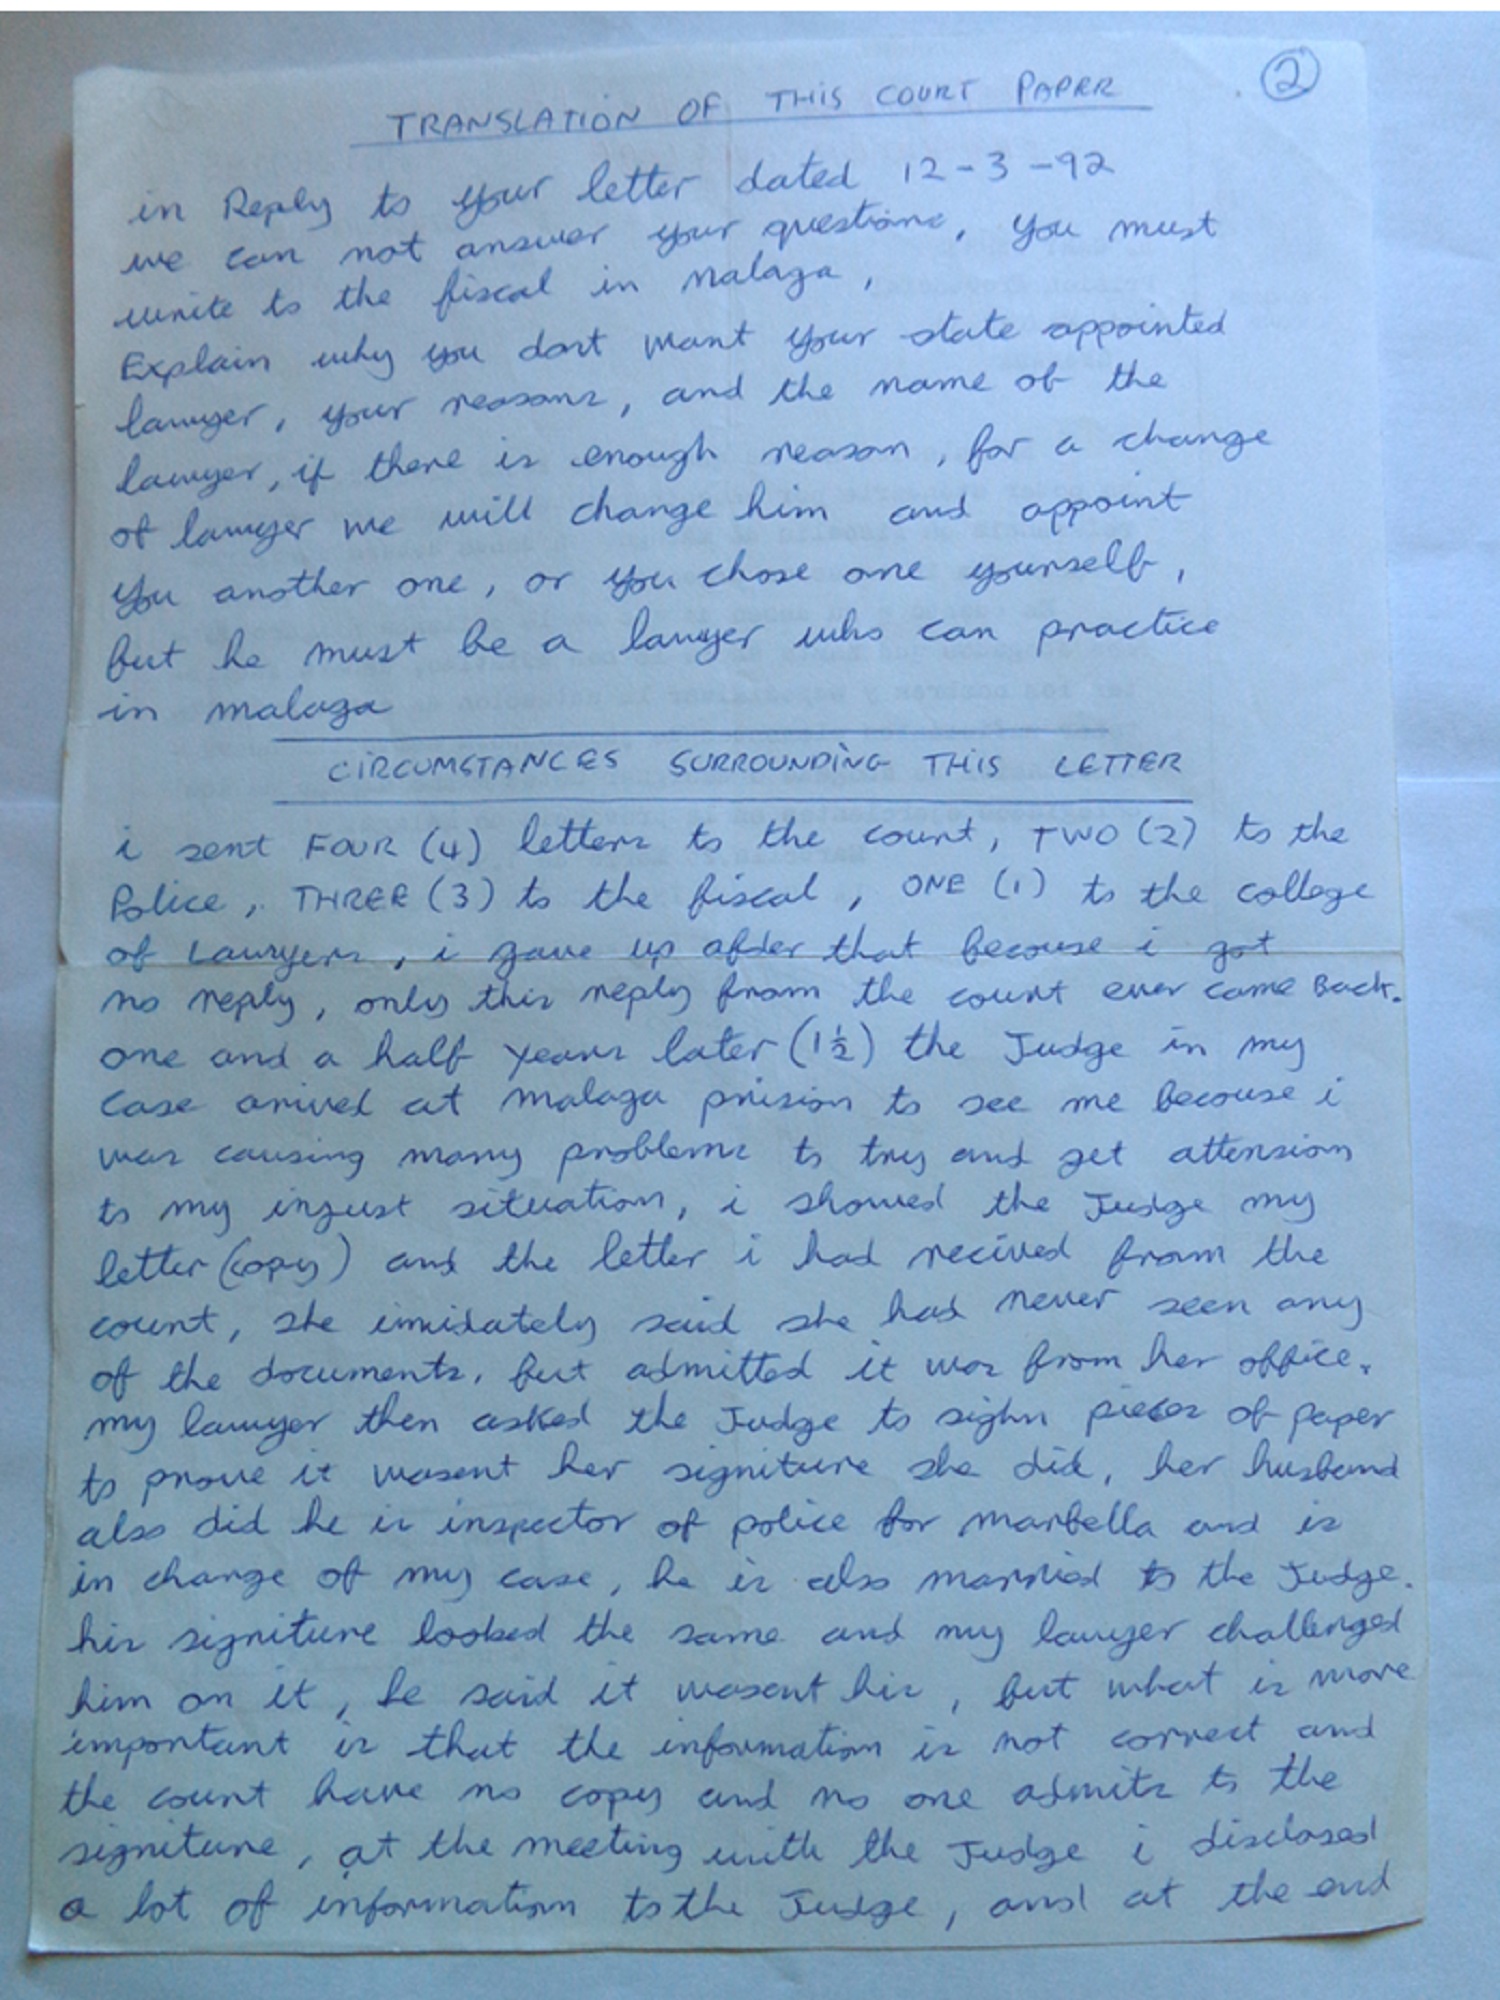 2
TRANSLATION OF THIS COURT PAPER
in Reply to your letter dated 12-3-92
we can not answer your questions, you must
write to the fiscal in malaga,
Explain why you dont want your state appointed
lawyer, your reasons, and the name of the
lawyer, if there is enough reason, for a change
of lawyer we will change him and appoint
you another one, or you chose one yourself,
but he must be a lawyer who can practice
in malaga
CIRCUMSTANCES SURROUNDING THIS LETTER
i sent FOUR (4) letters to the court, TWO (2) to the
Police, THREE (3) to the fiscal, ONE (1) to the college
of Lawyers, i gave up after that becouse i got
no reply, only this reply from the court ever came Back.
one and a half years later (1½) the Judge in my
case arived at malaga prision to see me becouse i
was causing many problems to try and get attension
to my injust situation, i showed the Judge my
letter (copy) and the letter i had recived from the
court, she imidately said she had never seen any
of the documents, but admitted it was from her office.
my lawyer then asked the Judge to sighn pieces of paper
to prove it wasent her signiture she did, her husband
also did he is inspector of police for marbella and is
in charge of my case, he is also married to the Judge.
his signiture looked the same and my lawyer challenged
him on it, he said it wasent his, but what is more
important is that the information is not correct and
the court have no copy and no one admits to the
signiture, at the meeting with the Judge i disclosed
a lot of information to the Judge, and at the end